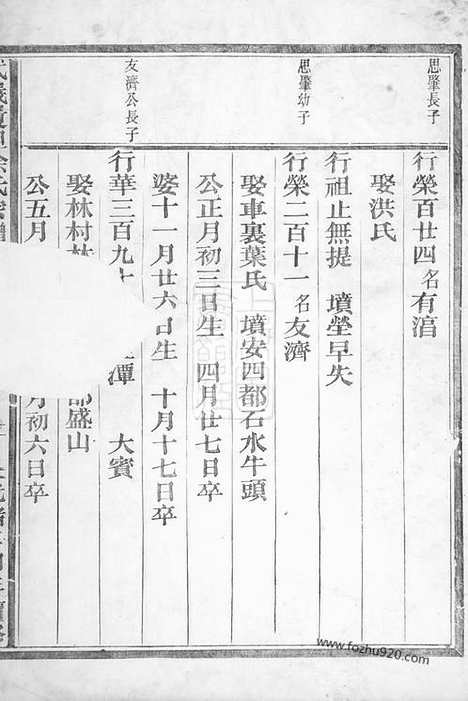 思肇長子
行榮百廿四名有㴠
娶洪氏
行祖止無提 墳塋早失
思肇幼子
行榮二百十一名友濟
娶車裏葉氏 墳安四都石水牛頭
公正月初三日生 四月廿七日卒
婆十一月廿六日生 十月十七日卒
友濟公長子
行華三百九十 潭 大賓
娶林村林 都盛山
公五月 月初六日卒
www.fozhu920.com